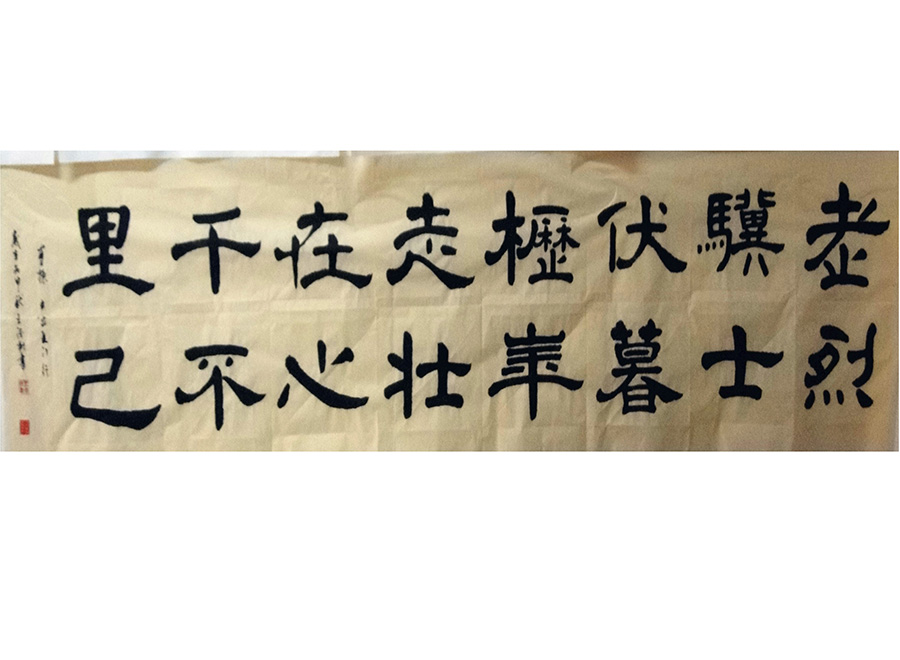 老驥伏櫪志在千里
烈士暮年壮心不已